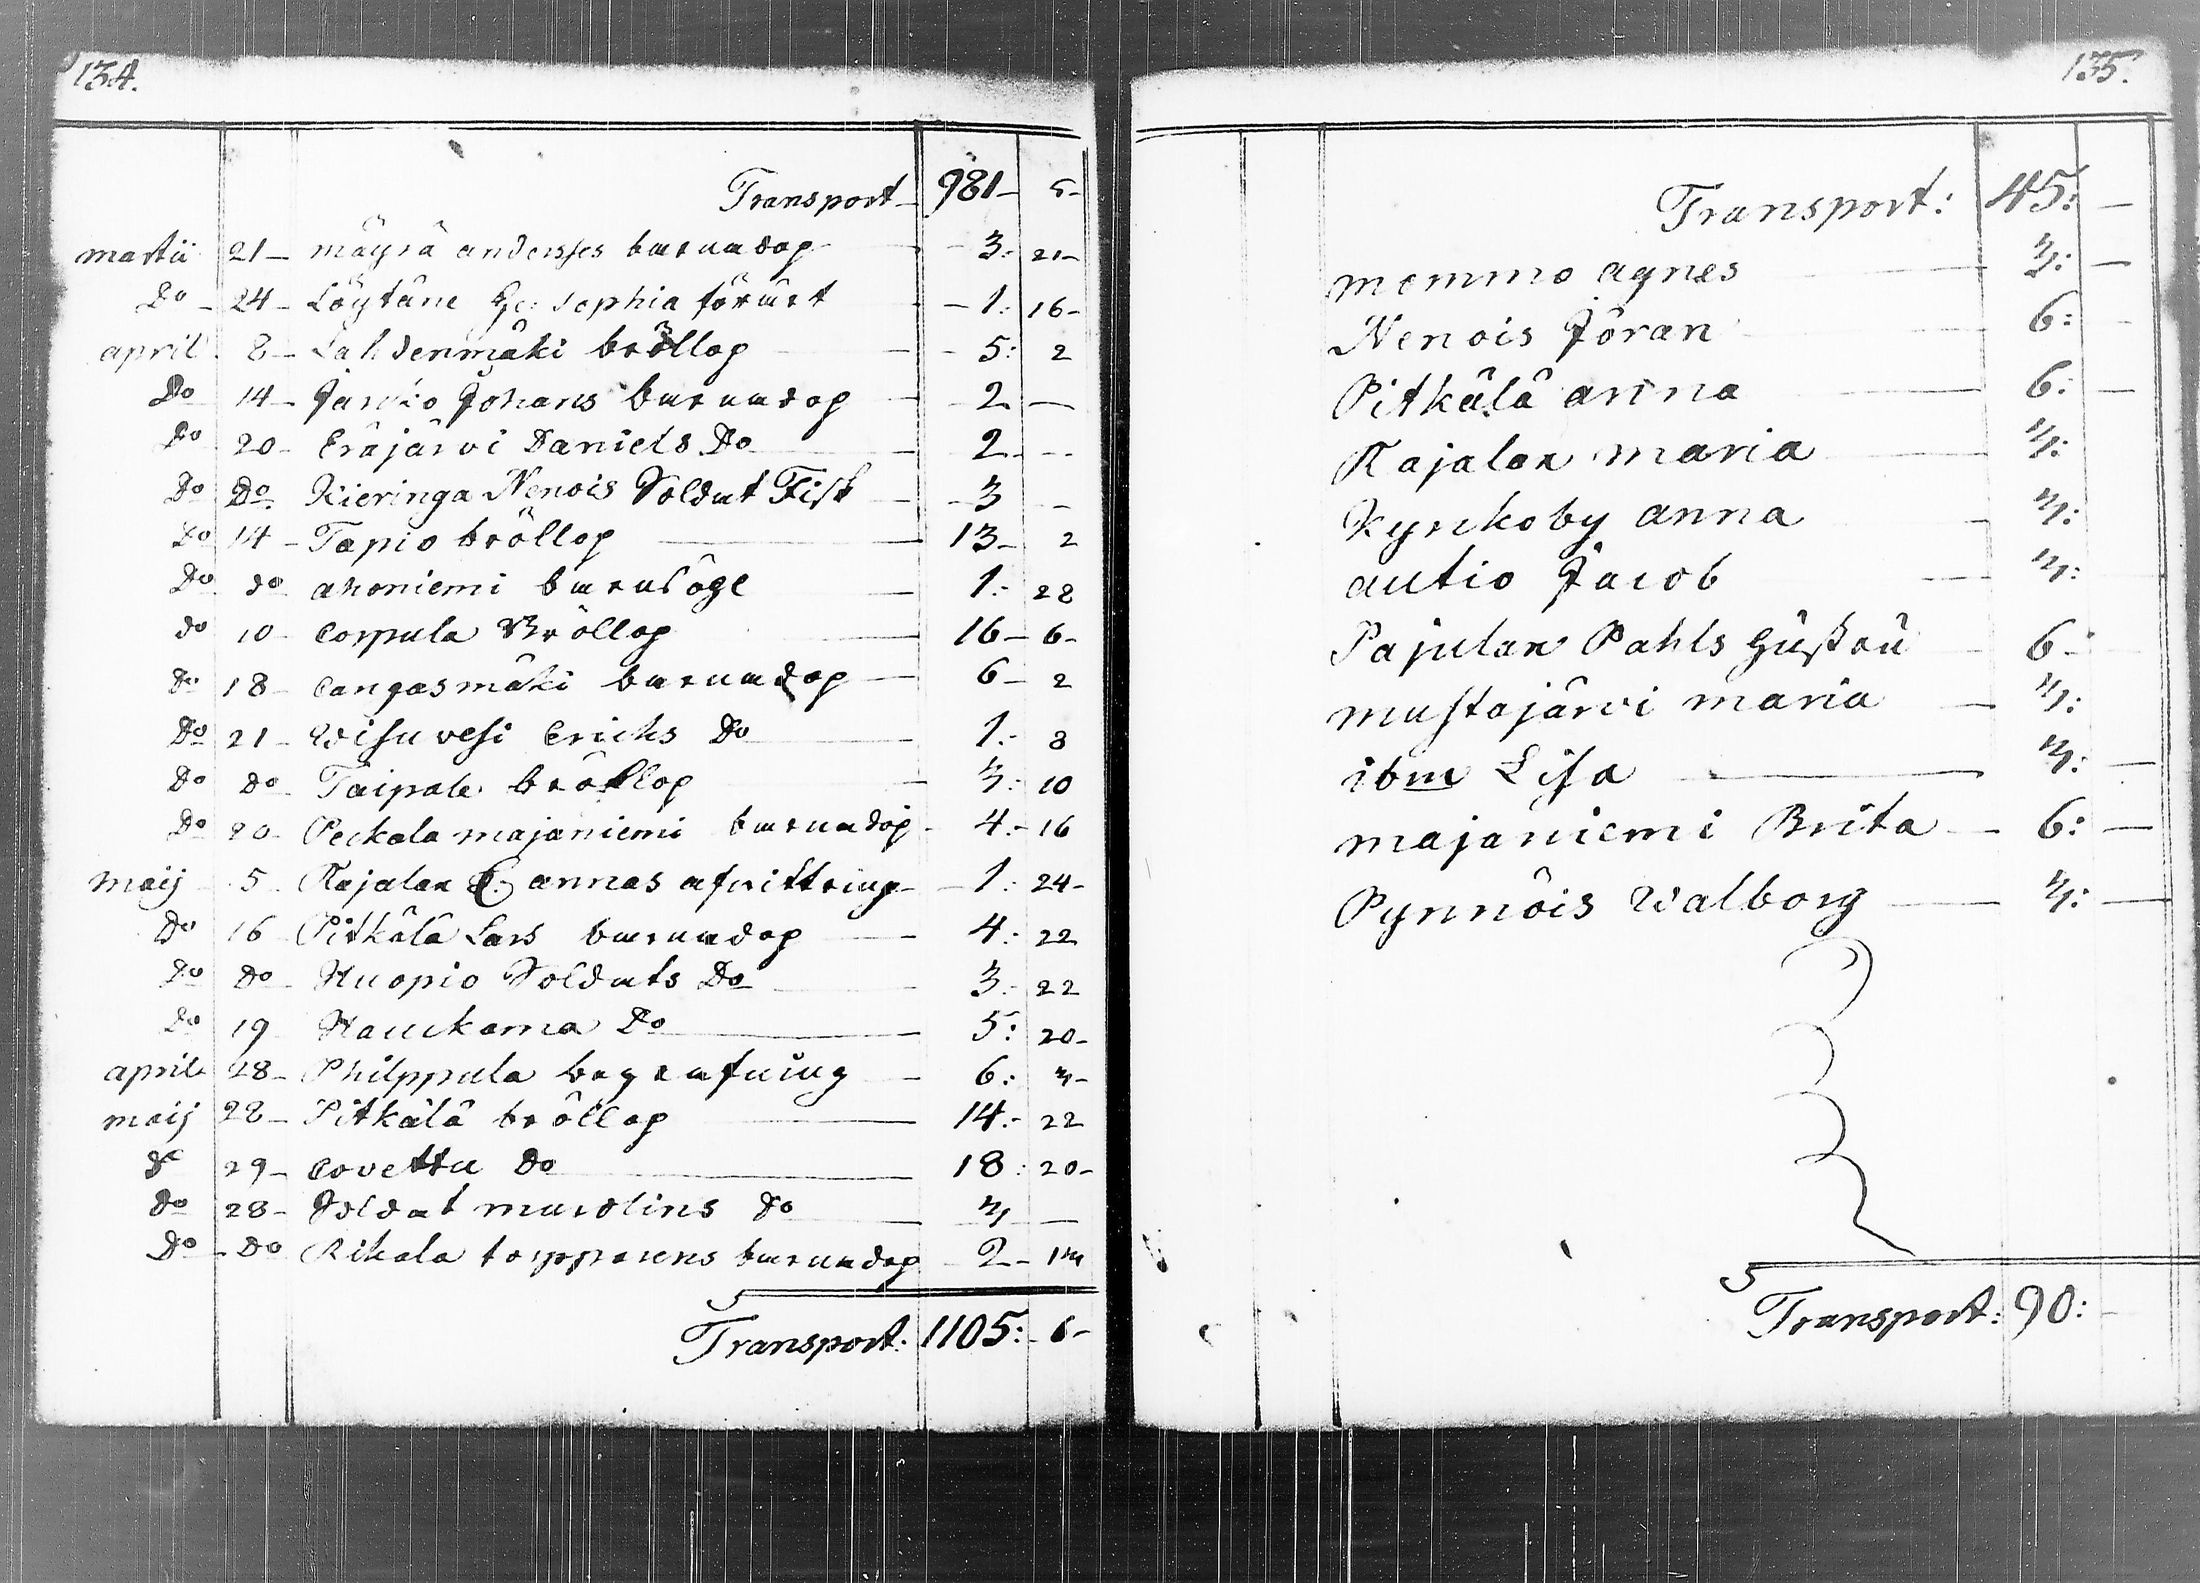 134.
Transport 981 5
martii 21 mäyrä andersses barnadop 3: 21
Do 24 Löytäne sophia förärt 1: 16
april 8 Lahdenmäki bröllop 5: 2
Do 14 Jarvio Johans barnadop 2 —
Do 20 Eräjärvi Daniels Do 2 —
Do Do Kieringa Nenois Soldat Fisk 3 —
Do 14 Tapio bröllop 13 2
Do do ahoniemi barnsöge 1: 28
do 10 corpula Bröllop 16 6
Do 18 cangasmäki barnadop 6 2
Do 21 Wisuvesi Erichs Do 1: 8
Do Do Taipale bröllop 3: 10
Do 20 Peckala majaniemi barnadop 4: 16
maij 5 Rajalan annas afvittring 1: 24
Do 16 Pitkälä Lars barnadop 4: 22
Do Do Huopio Soldats Do 3: 22
Do 19 Hauckama Do 5: 20
april 28 Philppula begrafning 6: 3
maij 28 Pitkälä bröllop 14: 22
do 29 covettu Do 18: 20
Do 28 Soldat murolins Do 3 —
Do Do Rikala torpparens barnadop 2 13
Transport: 1105: 6
135.
Transport: 45: —
mommo agnes 3: —
Nenois Jöran 6: —
Pitkälä anna 6: —
Rajalan maria 3:
Kyrckoby anna 3:
autio Jacob 3:
Pajulan Pahls Gustaü 6
mustajärvi maria 3:
ibm Lisa 3: —
majaniemi Brita 6: —
Pynnöis Walborg 3: —
Transport: 90: —